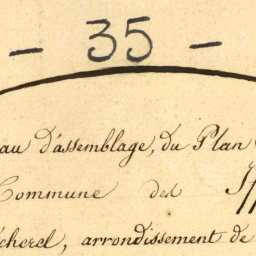 - 35 -
eau d'assemblage, du Plan
Commune des
cherel, arrondissement de